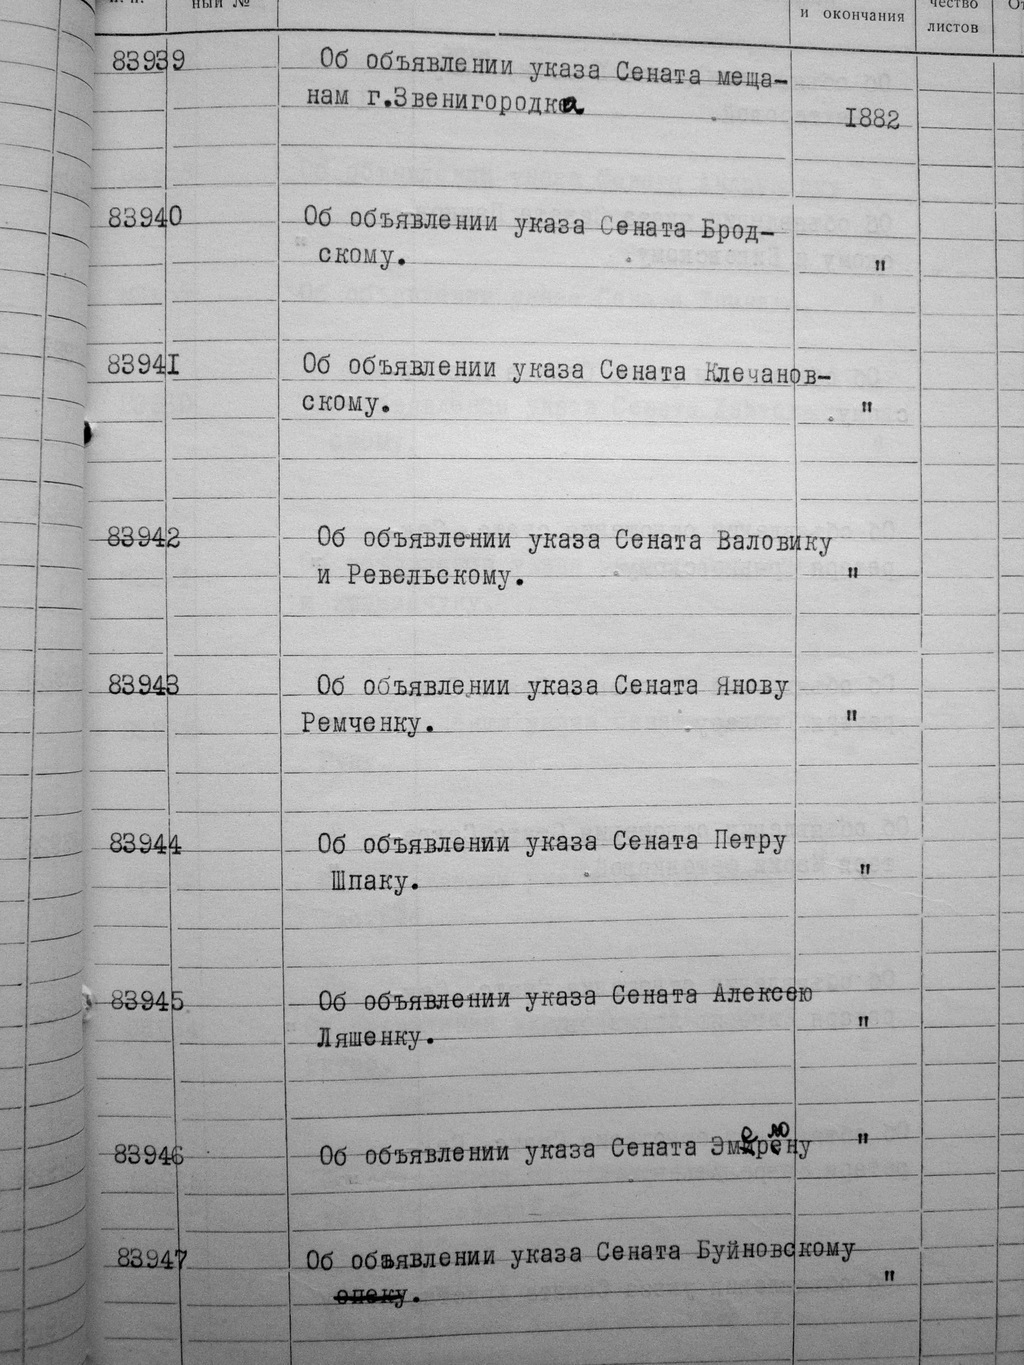 п. п.
ный №
и окончания
чество
листов
От
83939
Об объявлении указа Сената меща-
нам г.Звенигородка
1882
83940
Об объявлении указа Сената Брод-
скому.
"
83941
Об объявлении указа Сената Клечанов-
скому.
"
83942
Об объявлении указа Сената Валовику
и Ревельскому.
"
83943
Об объявлении указа Сената Янову
Ремченку.
"
83944
Об объявлении указа Сената Петру
Шпаку.
"
83945
Об объявлении указа Сената Алексею
Ляшенку.
"
83946
Об объявлении указа Сената
"
83947
Об объявлении указа Сената Буйновскому
опеку.
"